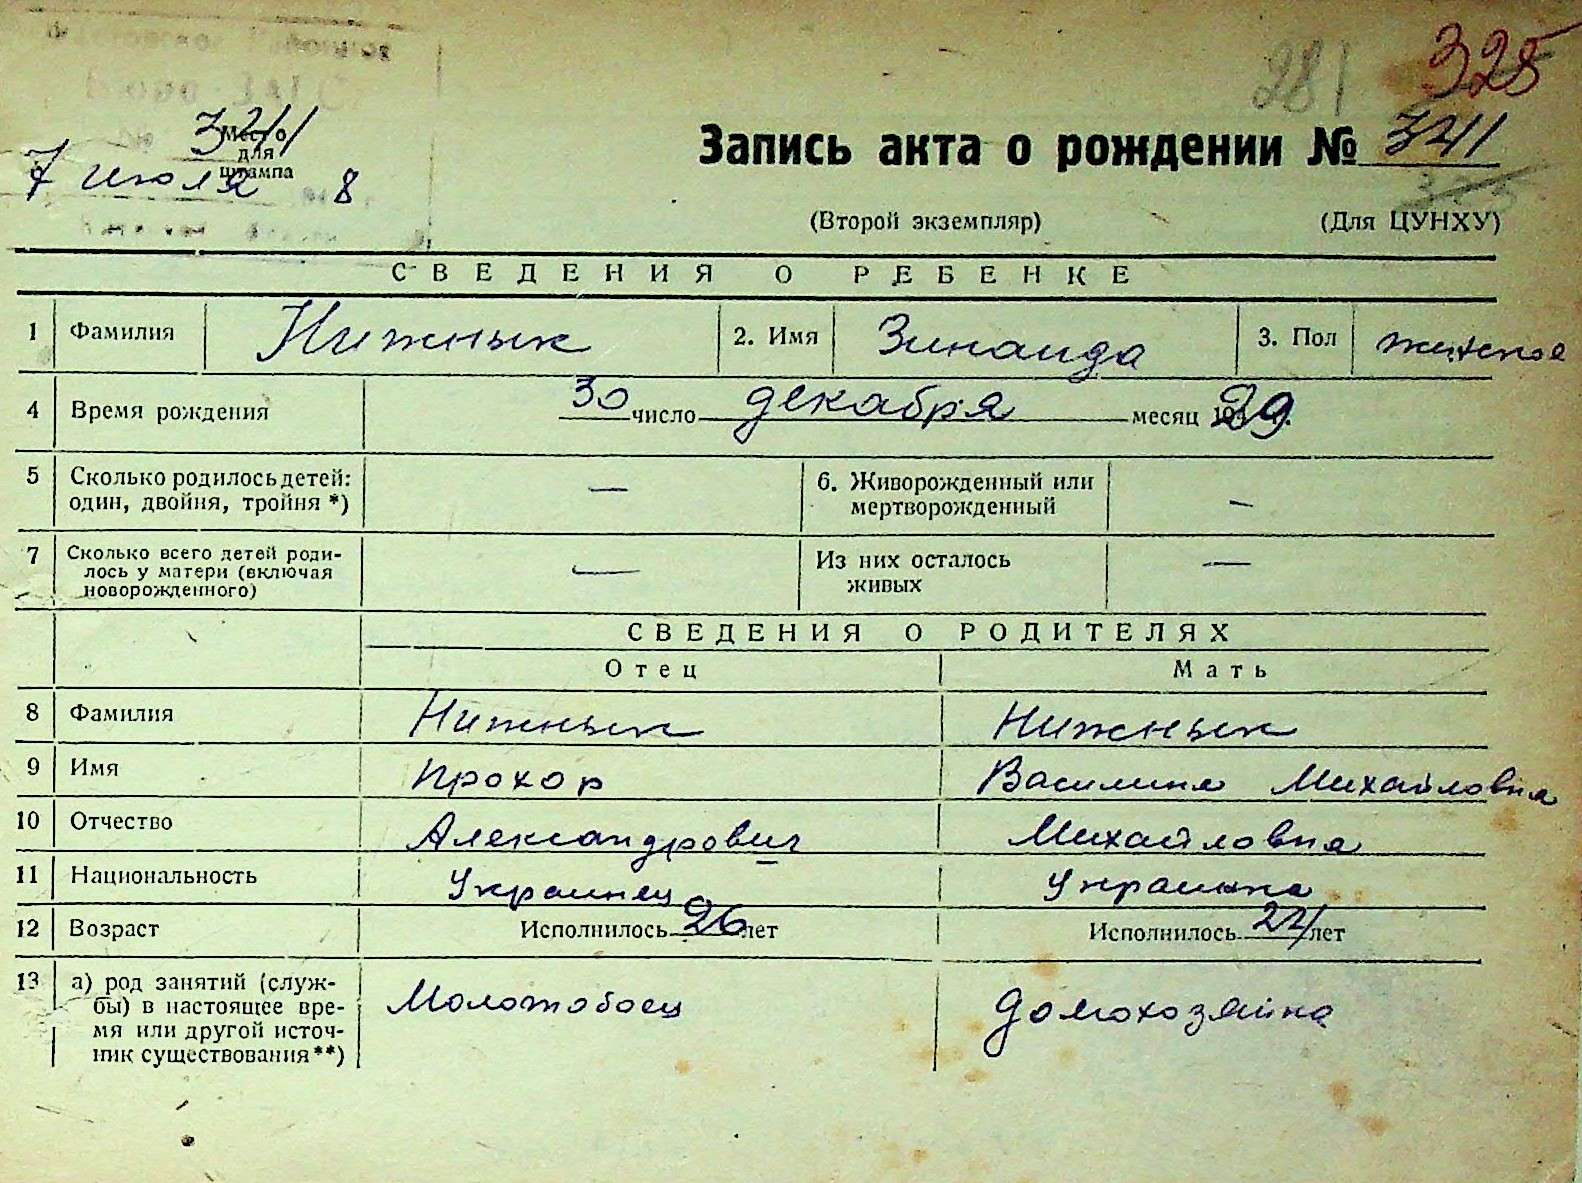 281 325
341
Место
для
штампа
7 июля 8
Запись акта о рождении № 341
325
(Второй экземпляр) (Для ЦУНХУ)
СВЕДЕНИЯ О РЕБЕНКЕ
1 Фамилия Нижнык 2. Имя Зинаида 3. Пол женское
4 Время рождения 30 число декабря месяц 1929.
5 Сколько родилось детей: — 6. Живорожденный или —
один, двойня, тройня *) мертворожденный
7 Сколько всего детей роди- — Из них осталось —
лось у матери (включая живых
новорожденного)
СВЕДЕНИЯ О РОДИТЕЛЯХ
Отец Мать
8 Фамилия Нижнык Нижнык
9 Имя Прохор Василина Михайловна
10 Отчество Александрович Михайловна
11 Национальность Украинец Украинка
12 Возраст Исполнилось 26 лет Исполнилось 22 лет
13 а) род занятий (служ- Молотобоец домохозяйка
бы) в настоящее вре-
мя или другой источ-
ник существования **)